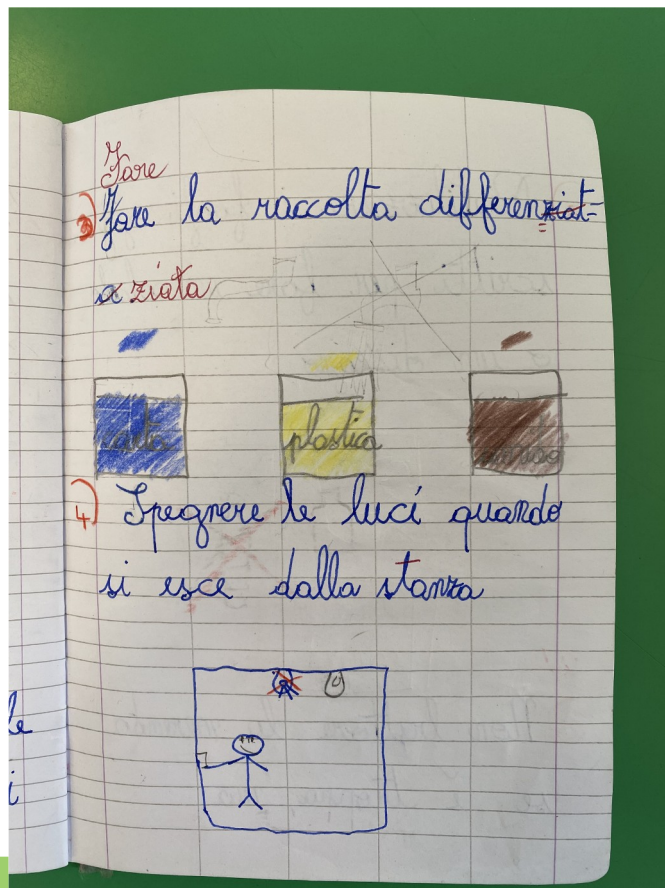 Fare
3) Fare la raccolta differenziat=
a ziata
carta plastica umido
4) Spegnere le luci quando
si esce dalla stanza
le
i